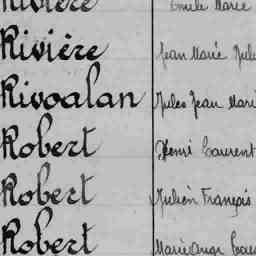 Rivière Emile Marie
Rivière Jean Marie Jules
Rivoalan Jules Jean Mari
Robert Henri Laurent
Robert Julien François
Robert Marie Ange